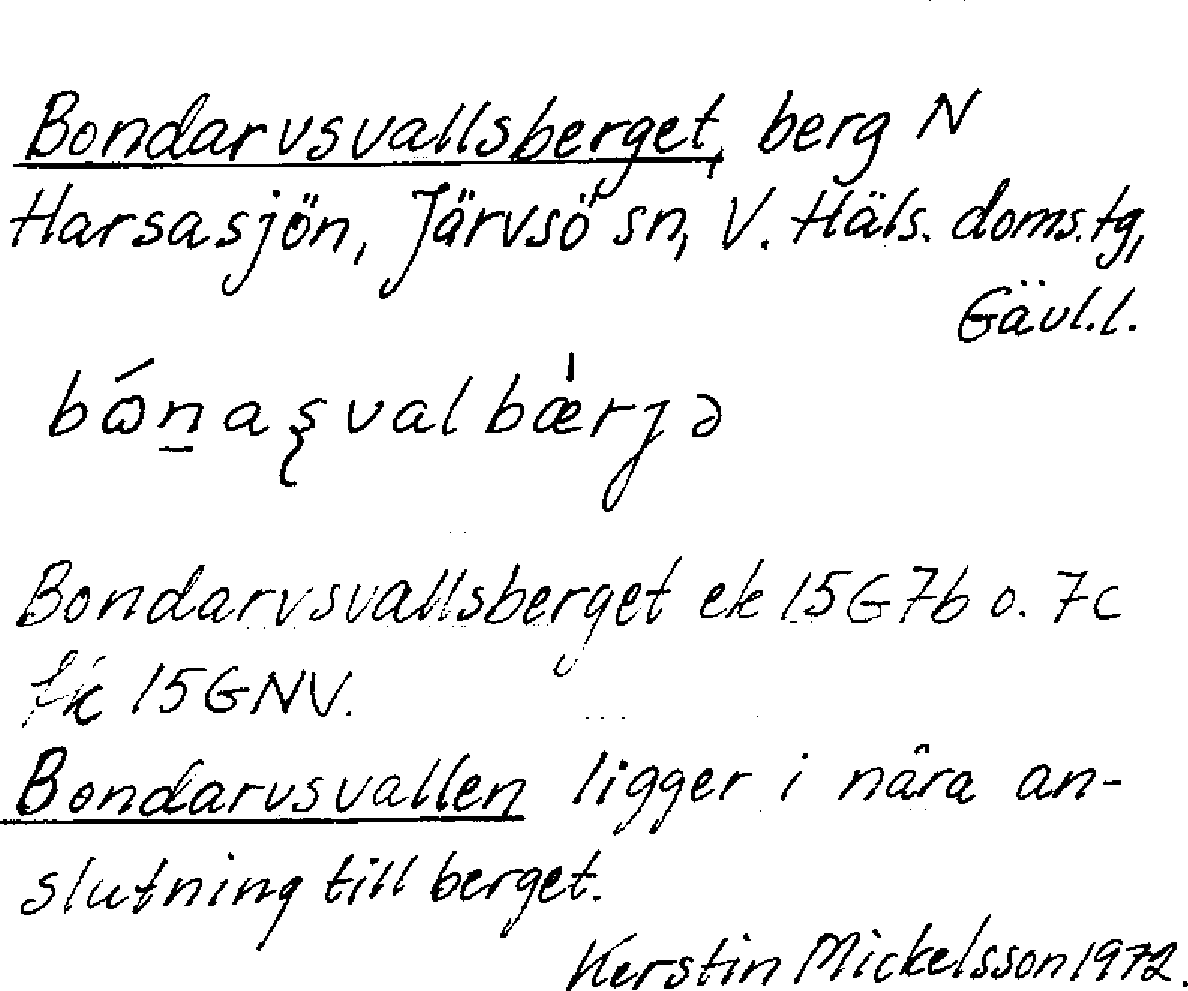 Bondarvsvallsberget, berg N
Harsasjön, Järvsö sn, V. Häls. doms.tg,
Gävl.l.
bɷ́n̠aʂvalbæ̍rȷə
Bondarvsvallsberget ek 15G7b o. 7c
fk 15GNV.
Bondarvsvallen ligger i nära an-
slutning till berget.
Kerstin Mickelsson 1972.